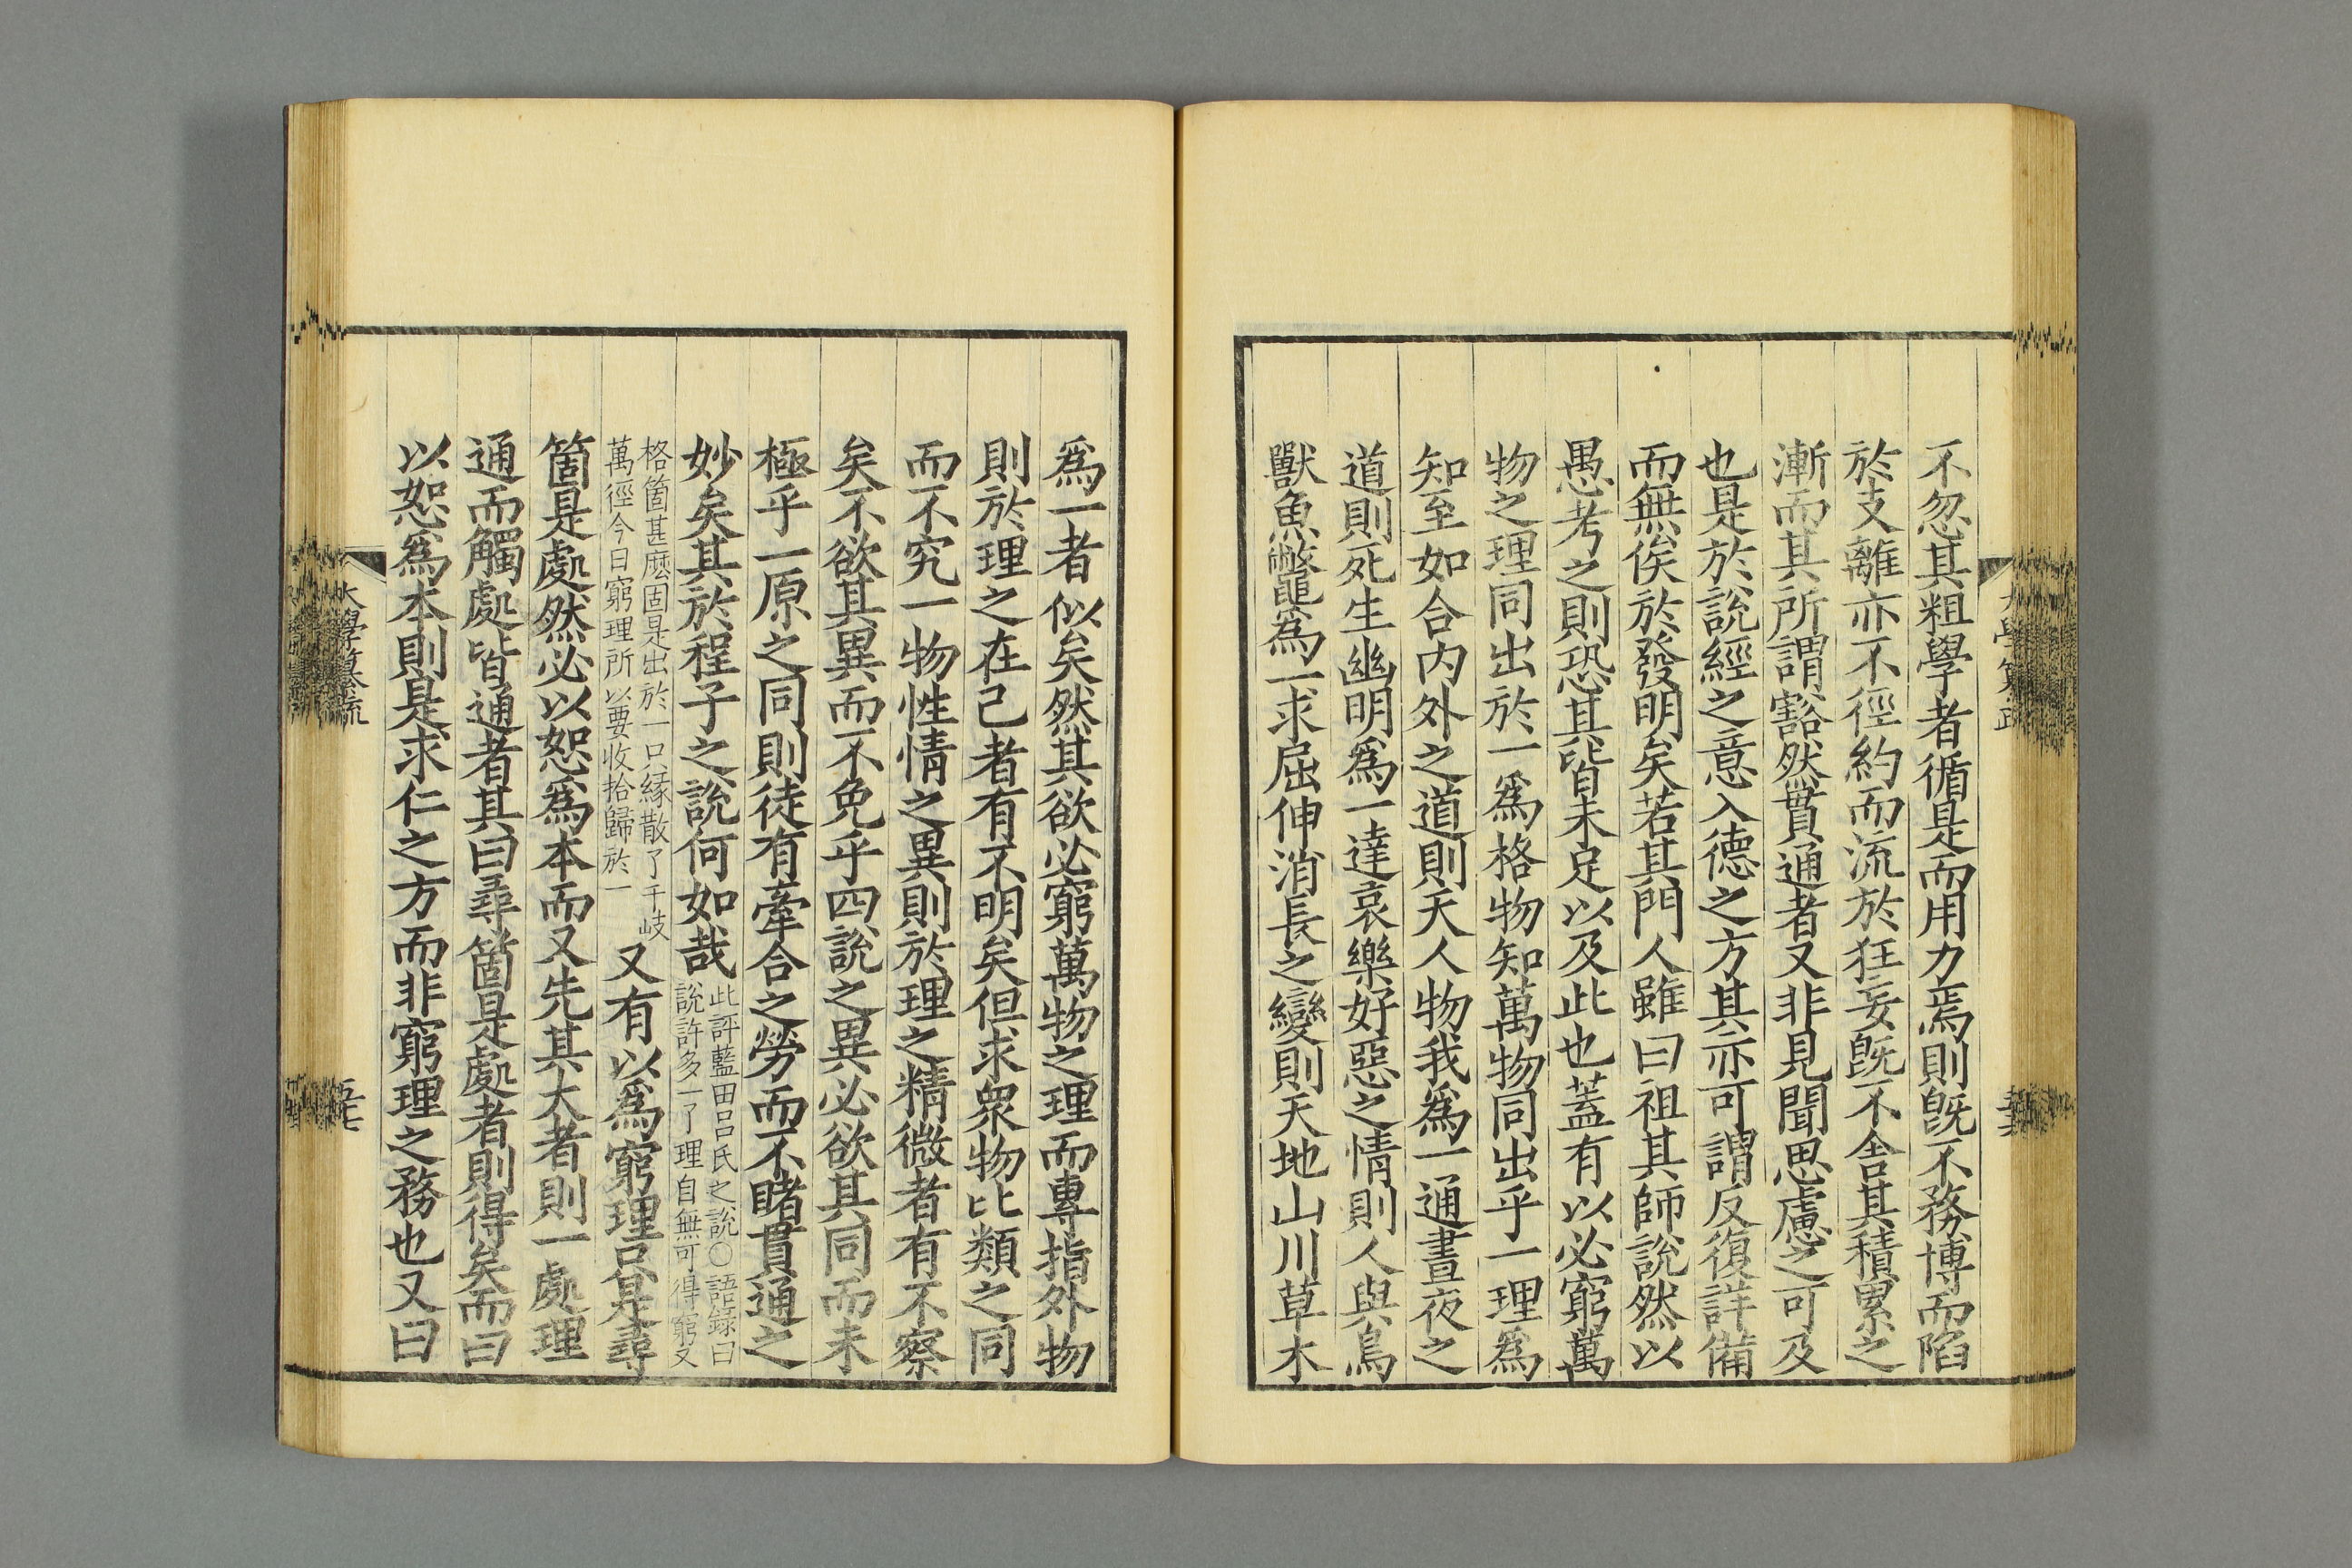 不忽其粗學者循是而用力焉則既不務博而陷
於支離亦不徑約而流於狂妄既不舍其積累之
漸而其所謂豁然貫通者又非見聞思慮之可及
也是於說經之意入德之方其亦可謂反復詳備
而無俟於發明矣若其門人雖曰祖其師說然以
愚考之則恐其皆未足以及此也蓋有以必窮萬
物之理同出於一爲格物知萬物同出乎一理爲
知至如合內外之道則天人物我爲一通晝夜之
道則死生幽明爲一達哀樂好惡之情則人與鳥
獸魚鼈爲一求屈伸消長之變則天地山川草木
爲一者似矣然其欲必窮萬物之理而專指外物
則於理之在己者有不明矣但求衆物比類之同
而不究一物性情之異則於理之精微者有不察
矣不欲其異而不免乎四說之異必欲其同而未
極乎一原之同則徒有牽合之勞而不睹貫通之
妙矣其於程子之說何如哉此評藍田呂氏之說○語錄曰
說許多一了理自無可得窮又
格箇甚麽固是出於一只緣散了千岐
萬徑今日窮理所以要收拾歸於一
又有以爲窮理只是尋
箇是處然必以恕爲本而又先其大者則一處理
通而觸處皆通者其曰尋箇是處者則得矣而曰
以恕爲本則是求仁之方而非窮理之務也又曰
大學纂疏
五七